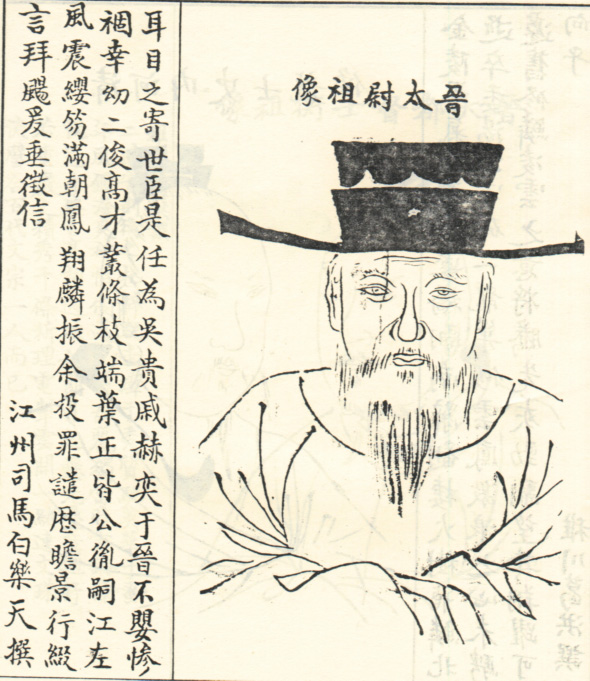 晉太尉祖像
耳目之寄世臣是任為吳貴戚赫奕于晉不嬰慘
禍幸幼二俊髙才叢條枝端葉正皆公胤嗣江左
風震纓笏滿朝鳳翔麟振余投罪譴歷瞻景行綴
言拜颺爰垂徵信
江州司馬白樂天撰